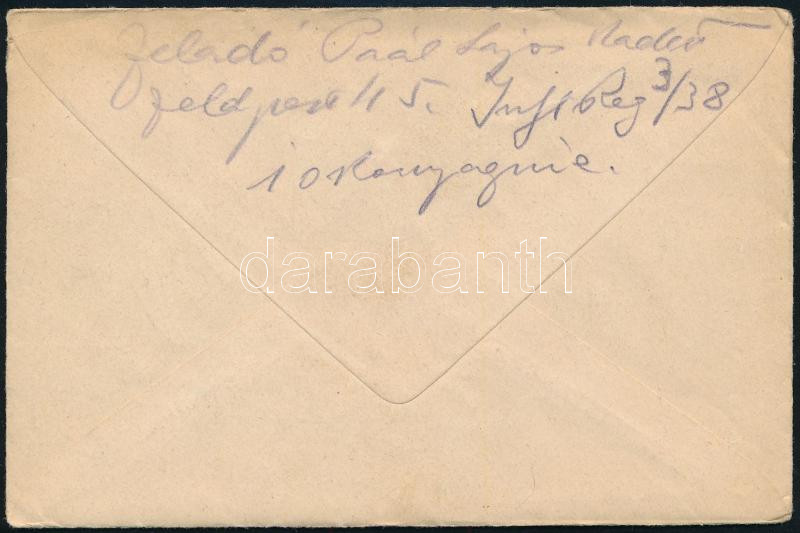 Feladó Paál Lajos Kadet
Feldpost 115. Inf. Reg 3/38
10 Konyagnie.
darabanth